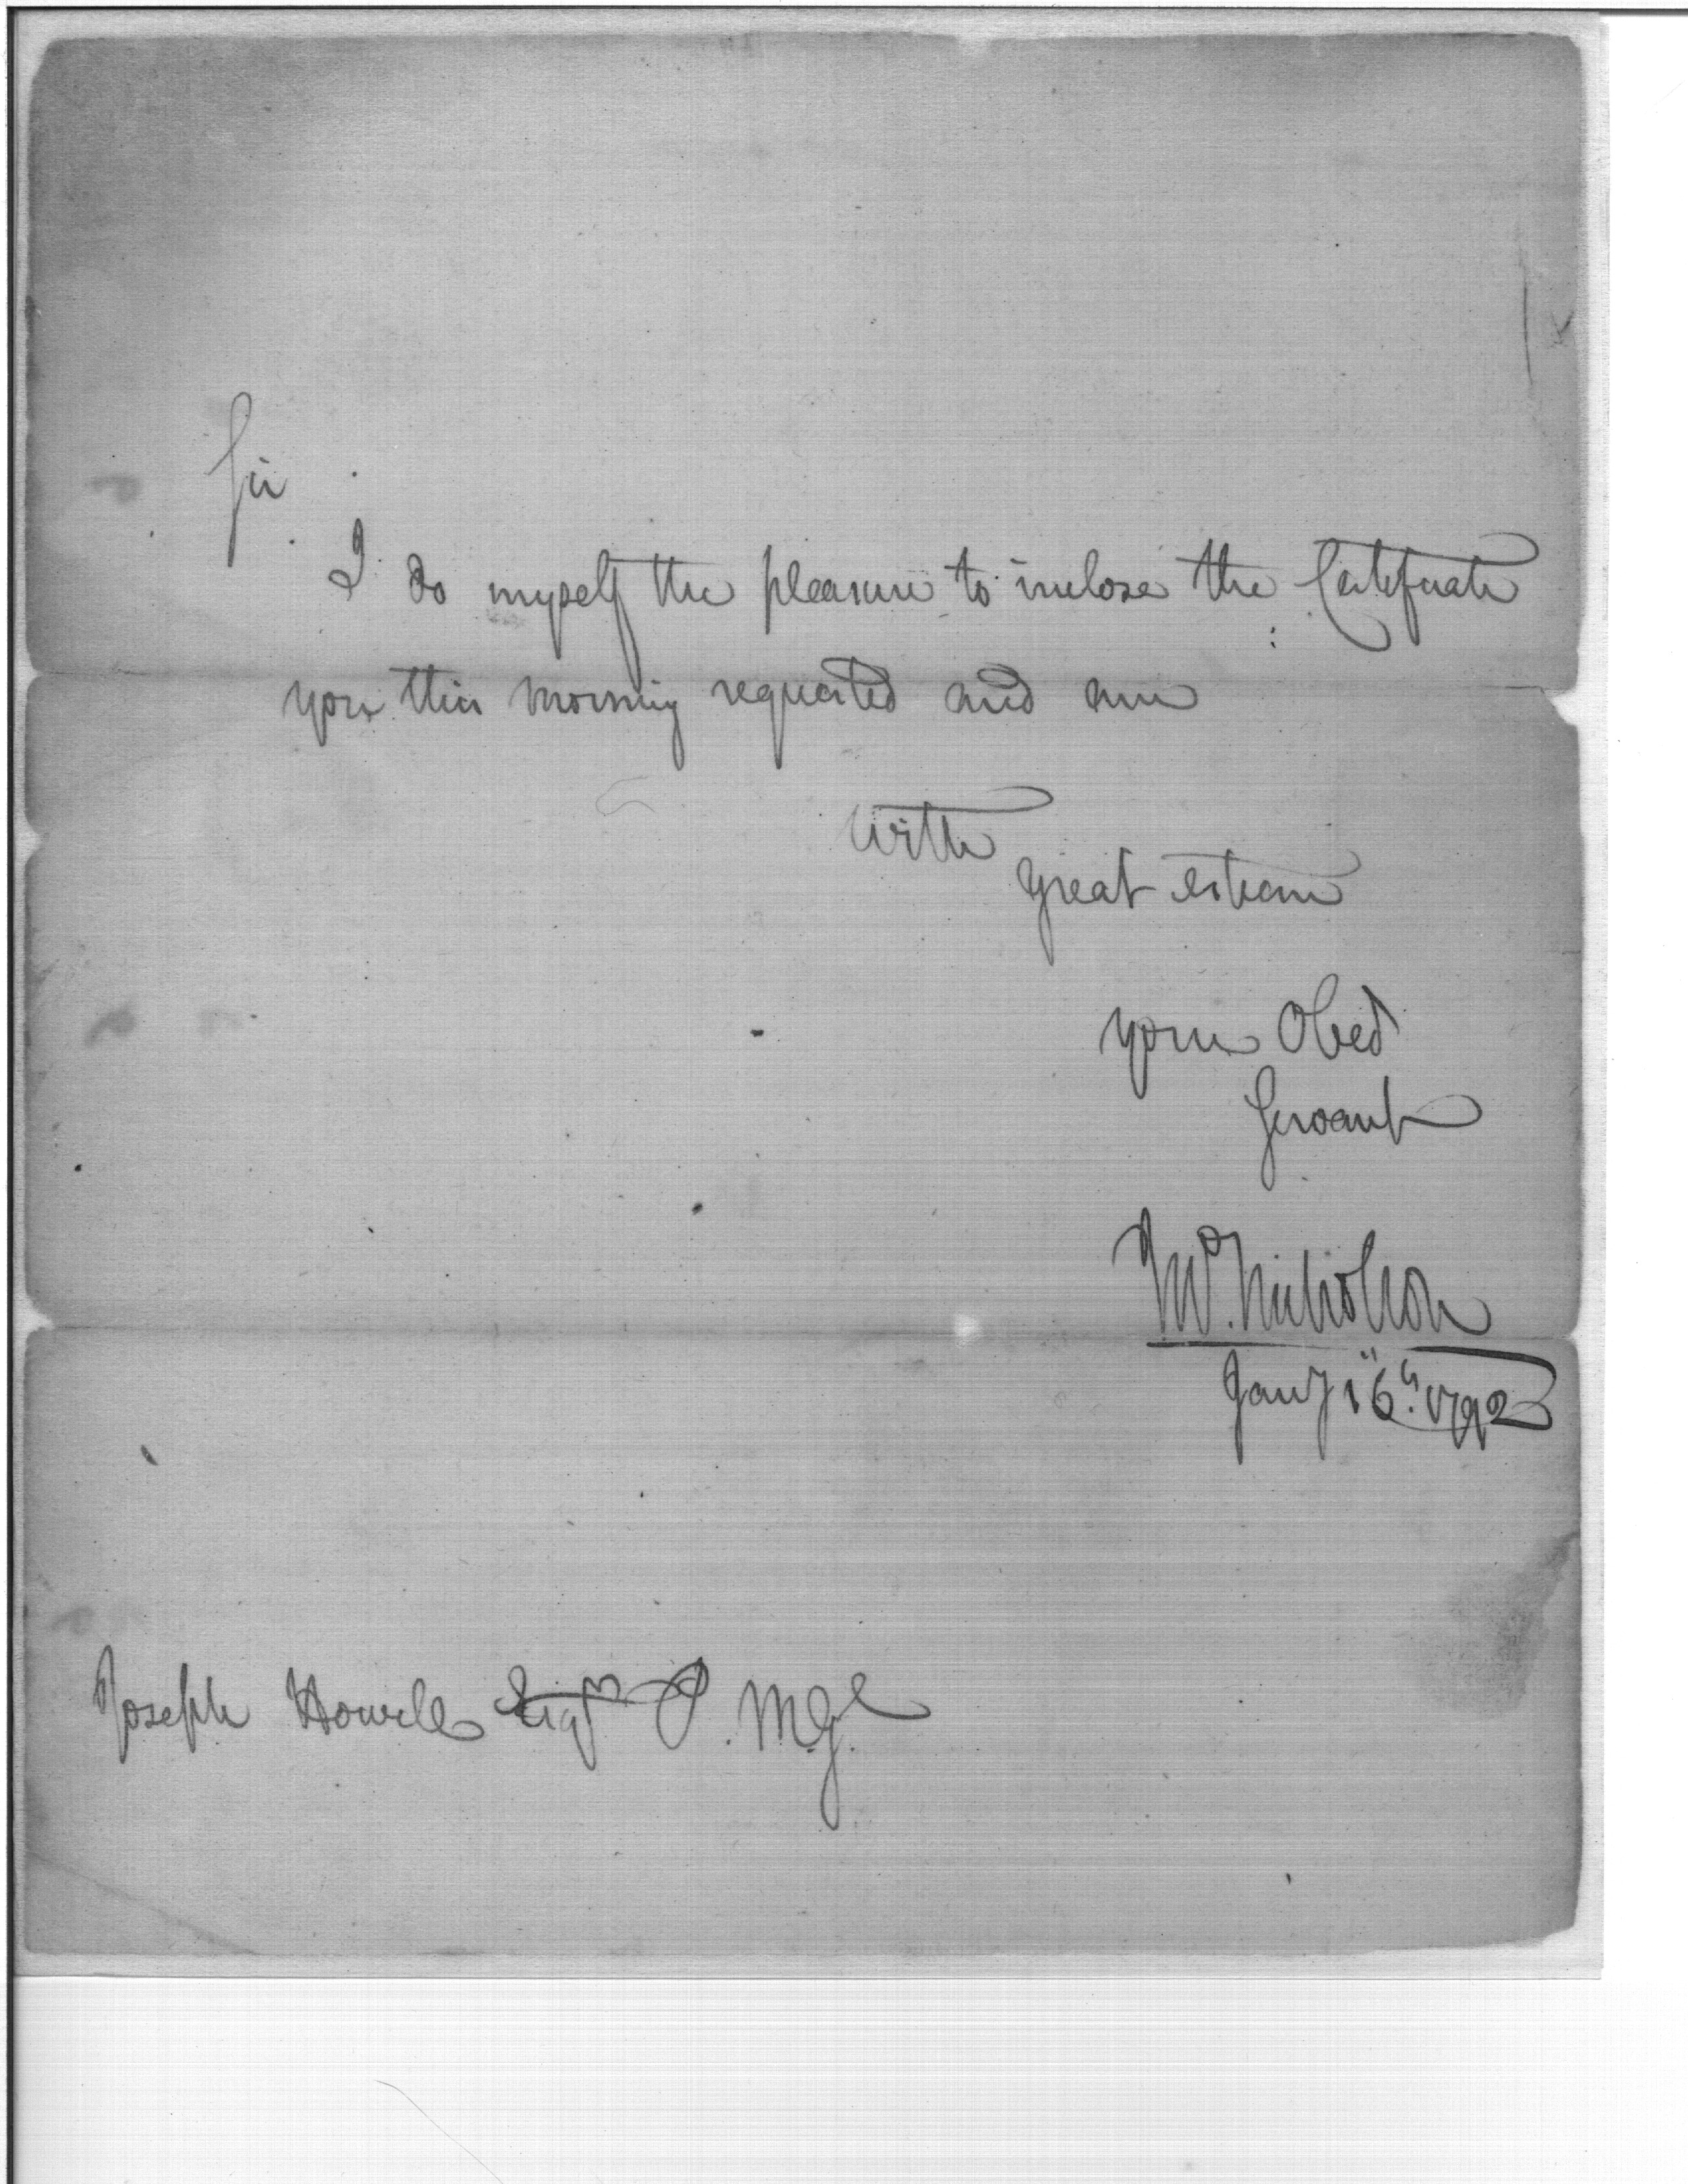 Sir
I do myself the pleasure to inclose the Certificate
you this morning requested and am
with
great esteem
your Obed
Servant
Jno. Nicholson
Jany 16th. 1792
Joseph Howell Esqr P. M Gl